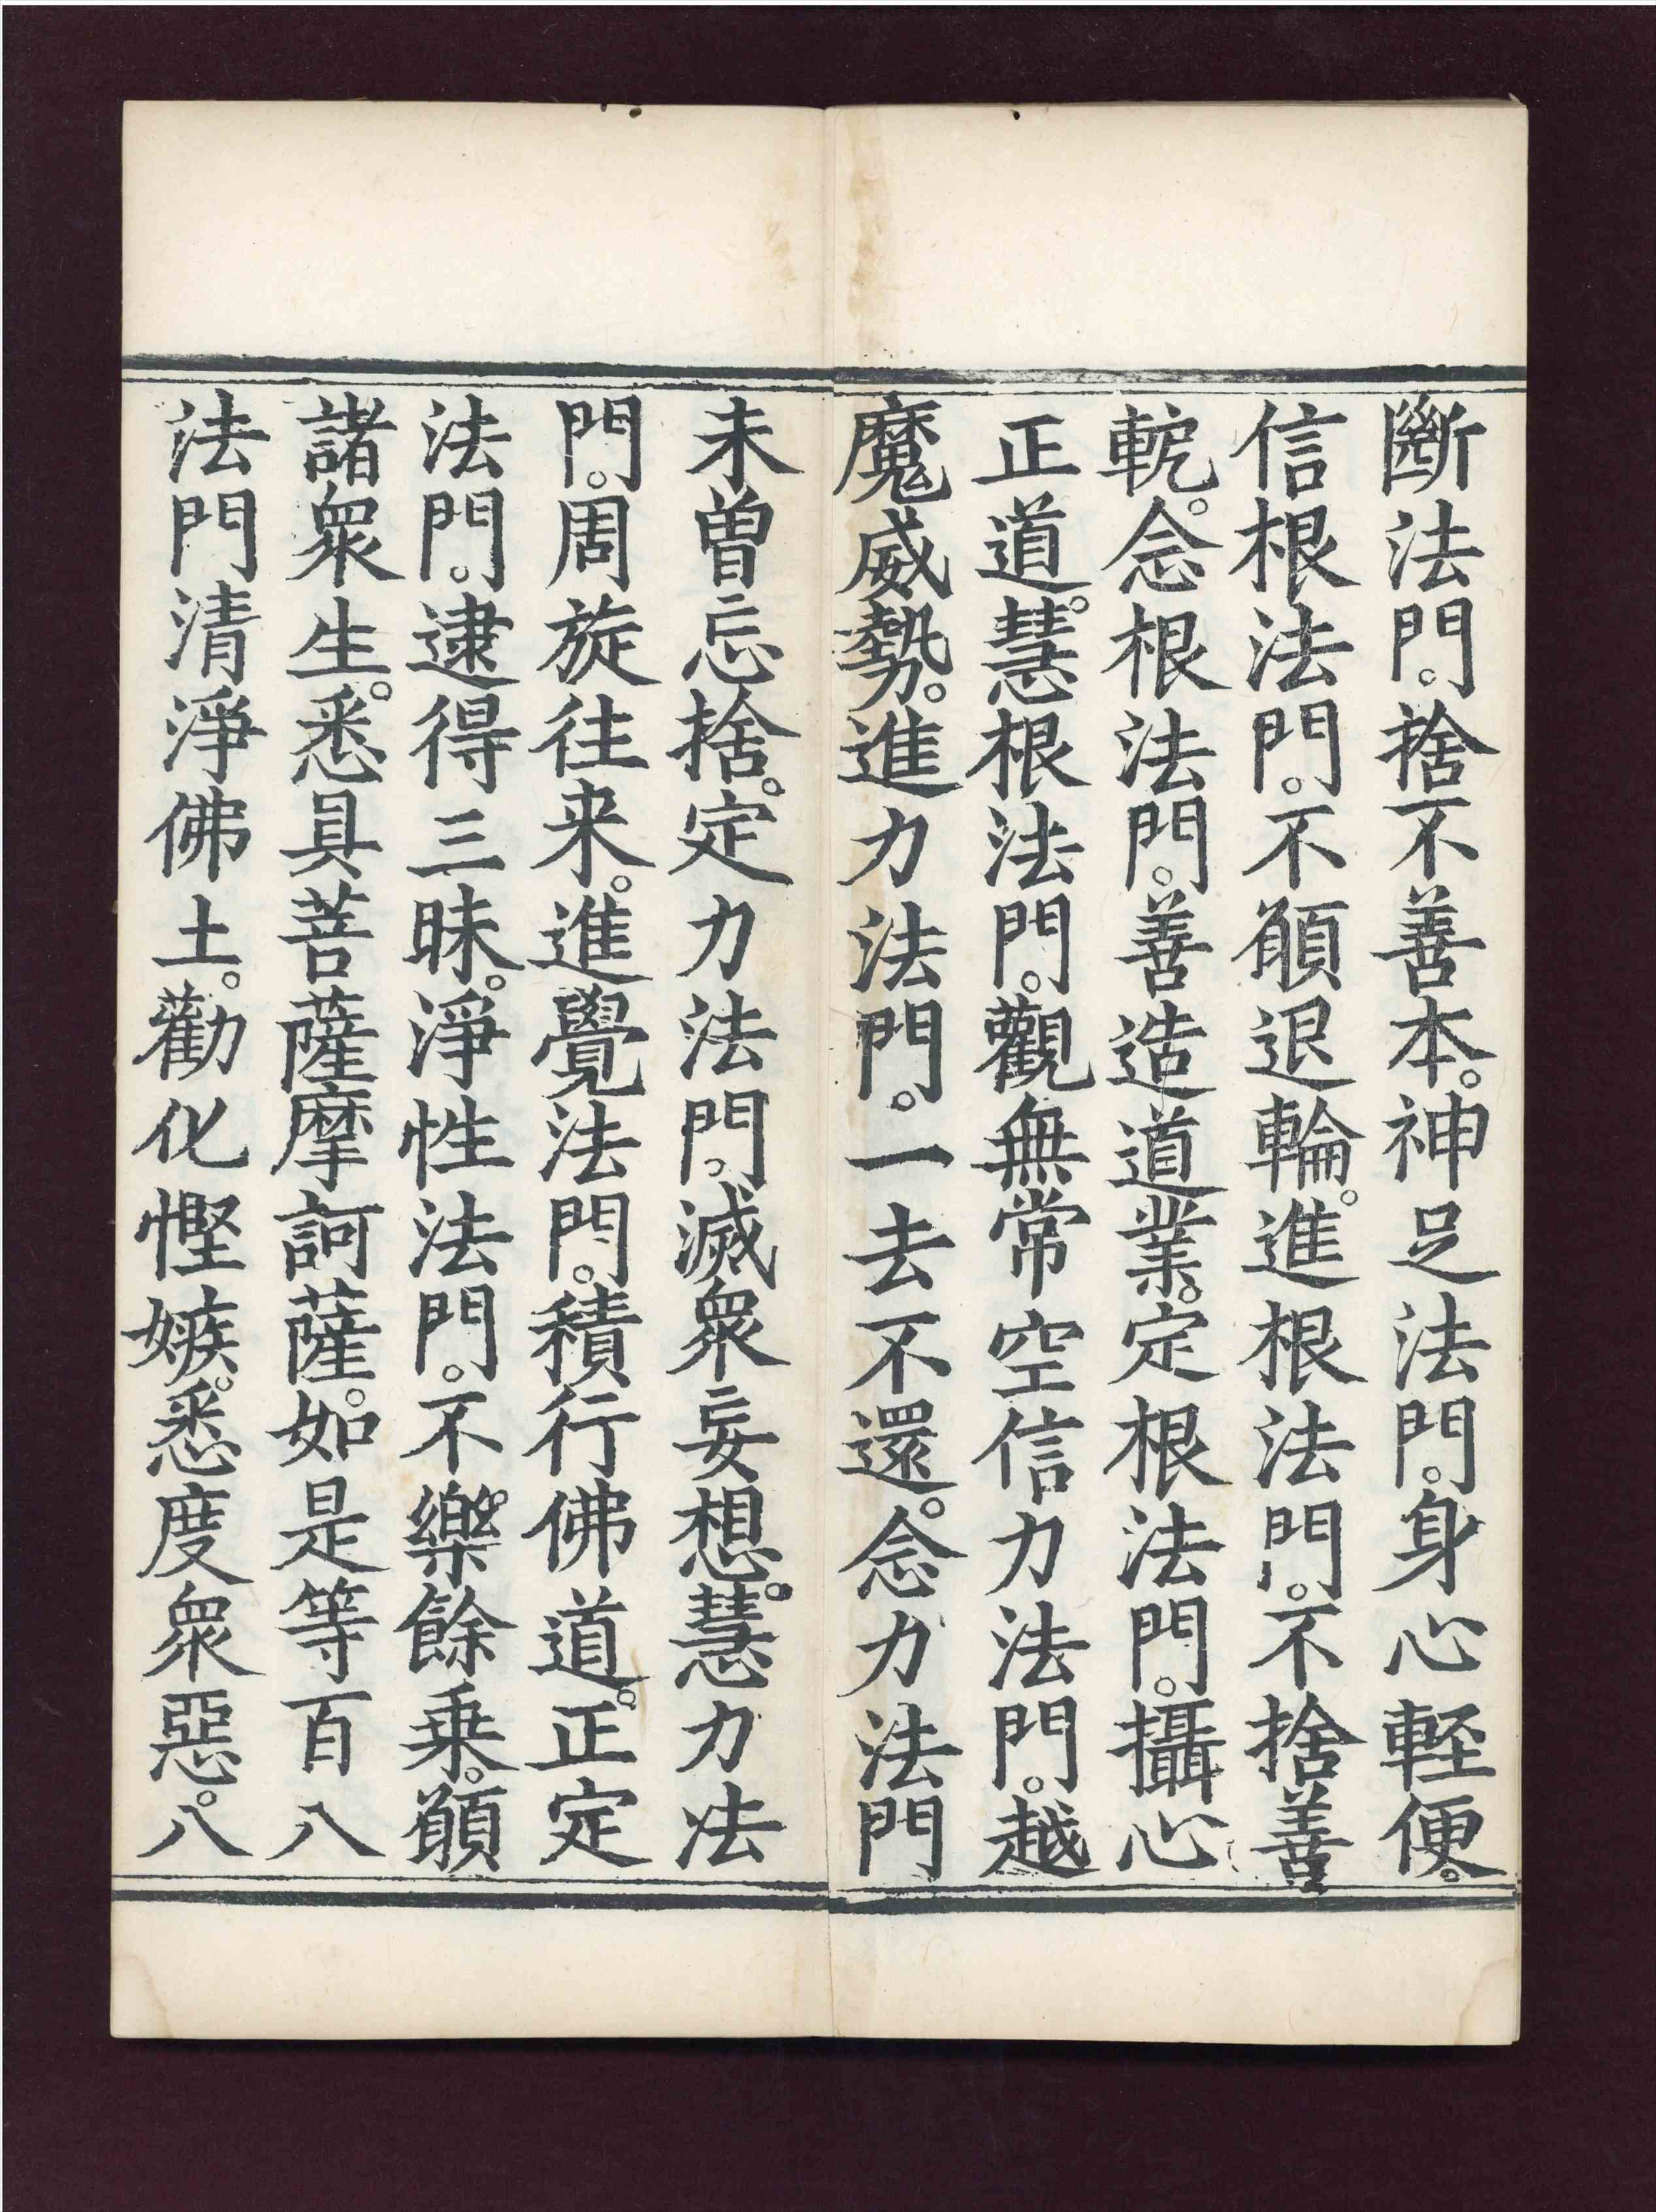 斷法門。捨不善本。神足法門。身心軽便。
信根法門。不願退輪。進根法門。不捨善
軛。念根法門。善造道業。定根法門。攝心
正道。慧根法門。觀無常空信力法門。越
魔威勢。進力法門。一去不還。念力法門
未曽忘捨。定力法門。滅衆妄想。慧力法
門。周旋往来。進覺法門。積行佛道。正定
法門。逮得三昧。淨性法門。不樂餘乗。願
諸衆生。悉具菩薩摩訶薩。如是等百八
法門清淨佛土。勸化慳嫉。悉度衆惡。八